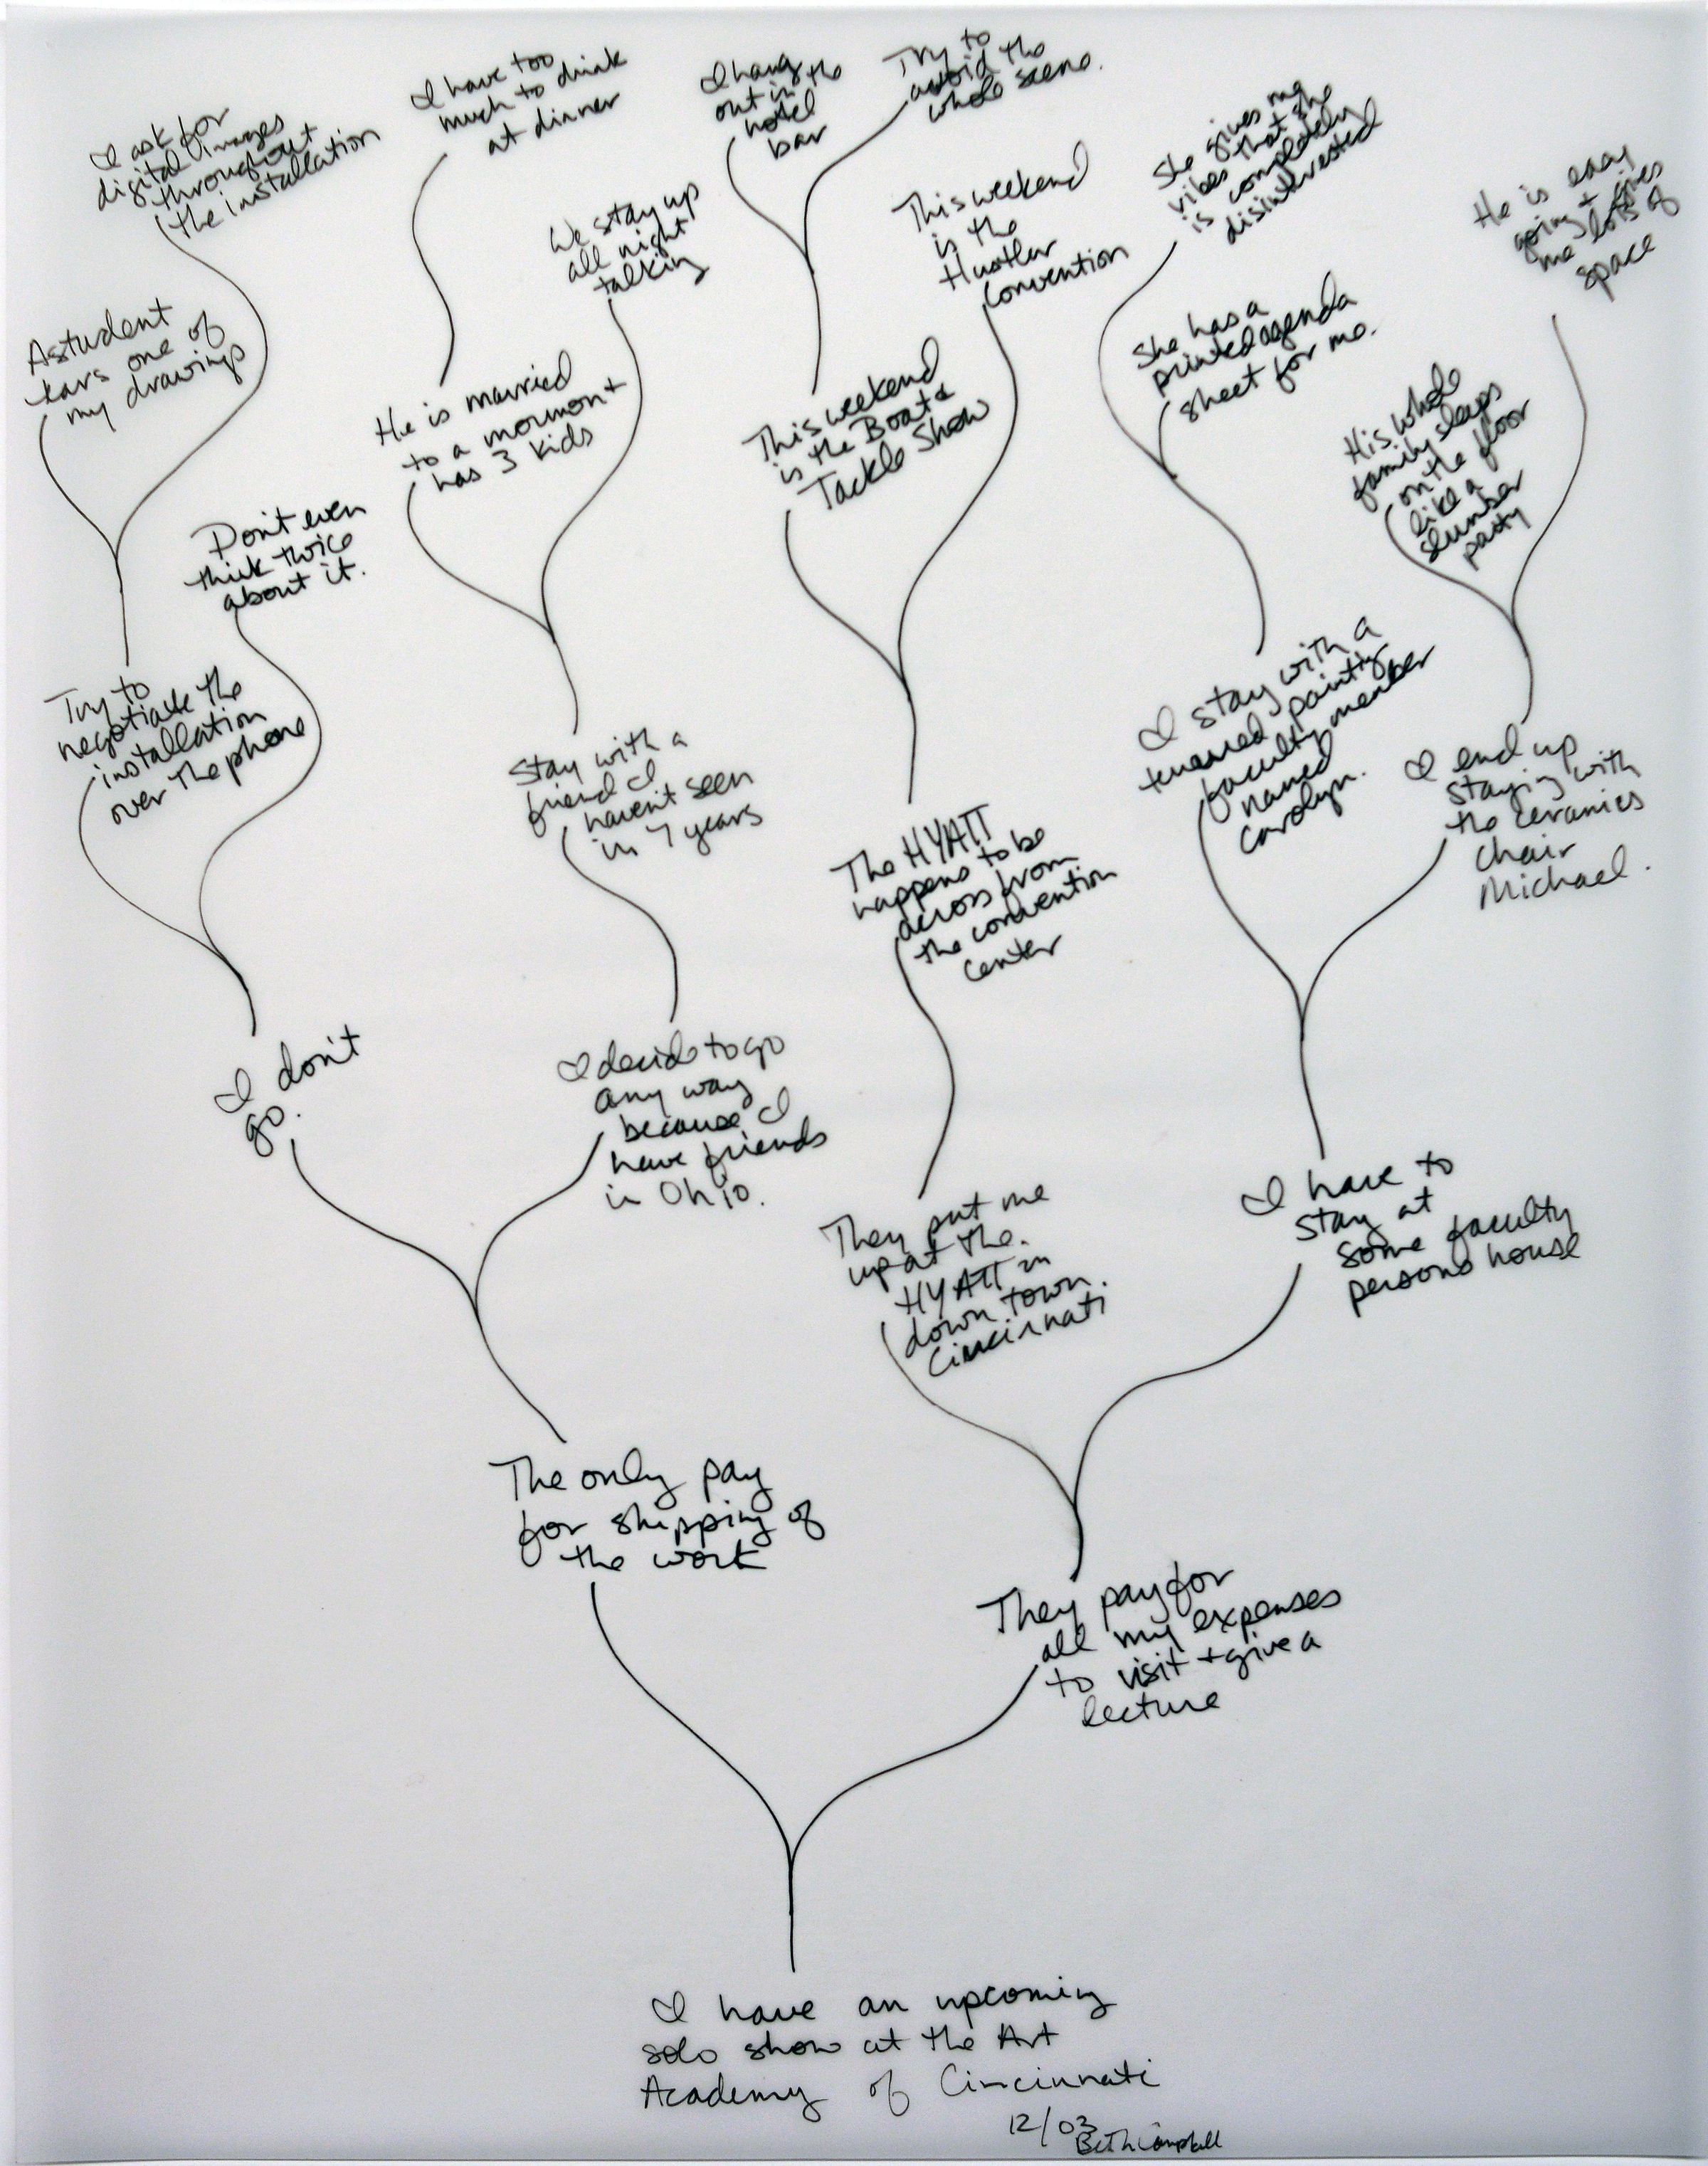 I ask for
digital images
throughout
the installation
I have too
much to drink
at dinner
I hang
out in the
hotel
bar
Try to
avoid the
whole scene.
She gives me
vibes that she
is completely
disinterested
He is easy
going + gives
me lots of
space
This weekend
is the
Hustler
Convention
We stay up
all night
talking
A student
tears one of
my drawings
She has a
printed agenda
sheet for me.
He is married
to a mormon +
has 3 kids
This weekend
is the Boat &
Tackle Show
His whole
family sleeps
on the floor
like a
slumber
party
Don't even
think twice
about it.
Try to
negotiate the
installation
over the phone
Stay with a
friend I
haven't seen
in 7 years
The HYATT
happens to be
across from
the convention
center
I stay with a
tenured painting
faculty member
named
Carolyn.
I end up
staying with
the ceramics
chair
Michael.
I don't
go.
I decide to go
any way
because I
have friends
in Ohio.
They put me
up at the.
HYATT in
down town.
Cincinnati
I have to
stay at
some faculty
persons house
The only pay
for shipping of
the work
They pay for
all my expenses
to visit + give a
lecture
I have an upcoming
solo show at the Art
Academy of Cincinnati
12/03
Beth Campbell